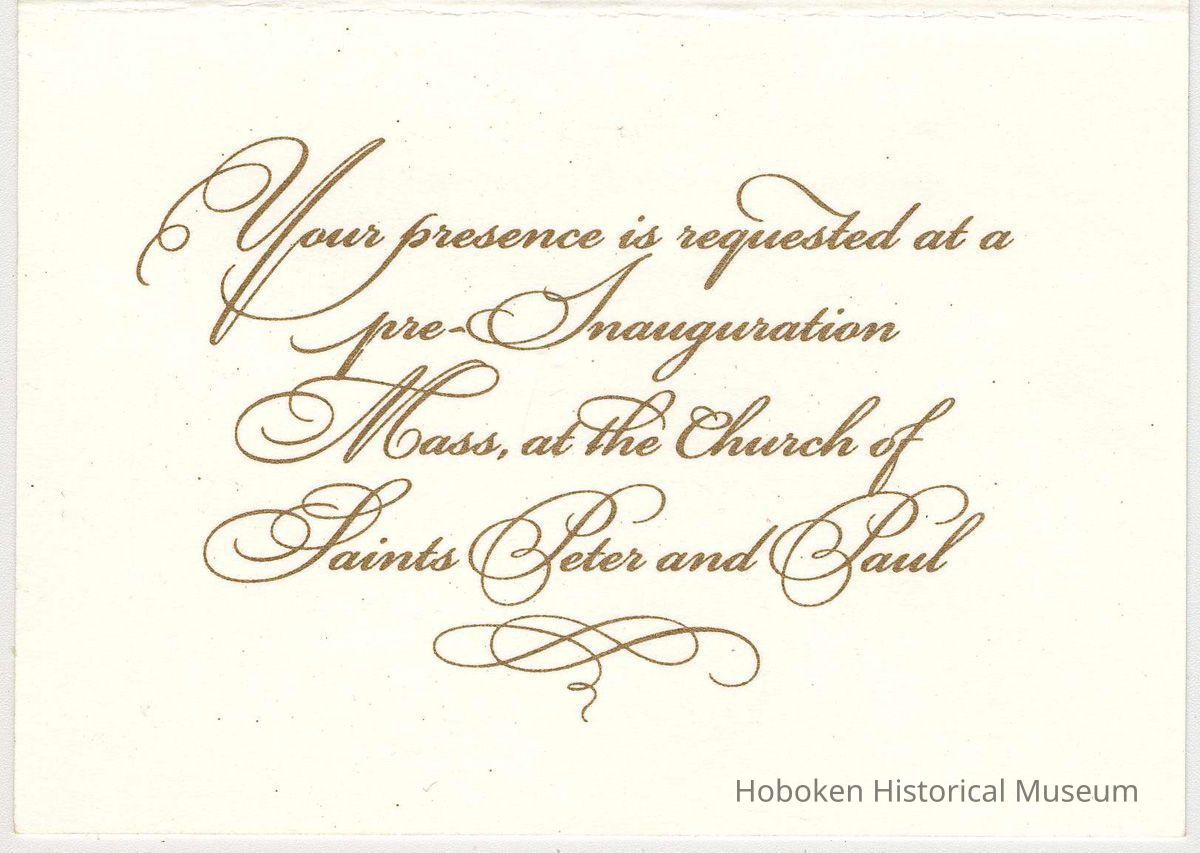 Your presence is requested at a
pre-Inauguration
Mass, at the Church of
Saints Peter and Paul
Hoboken Historical Museum